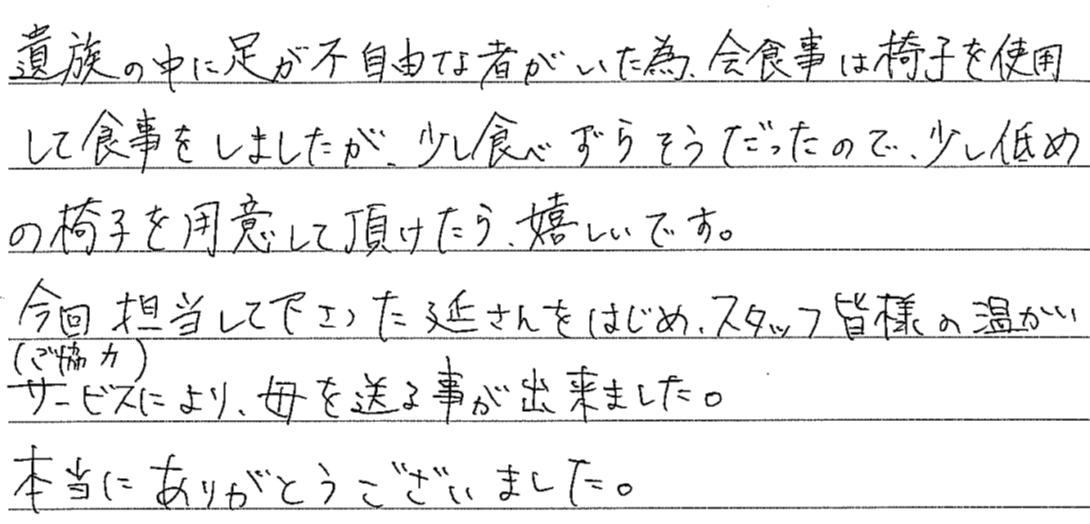 遺族の中に足が不自由な者がいた為、会食事は椅子を使用
して食事をしましたが、少し食べずらそうだったので、少し低め
の椅子を用意して頂けたら、嬉しいです。
今回担当して下さった延さんをはじめ、スタッフ皆様の温かい
(ご協力)
サービスにより、母を送る事が出来ました。
本当にありがとうございました。